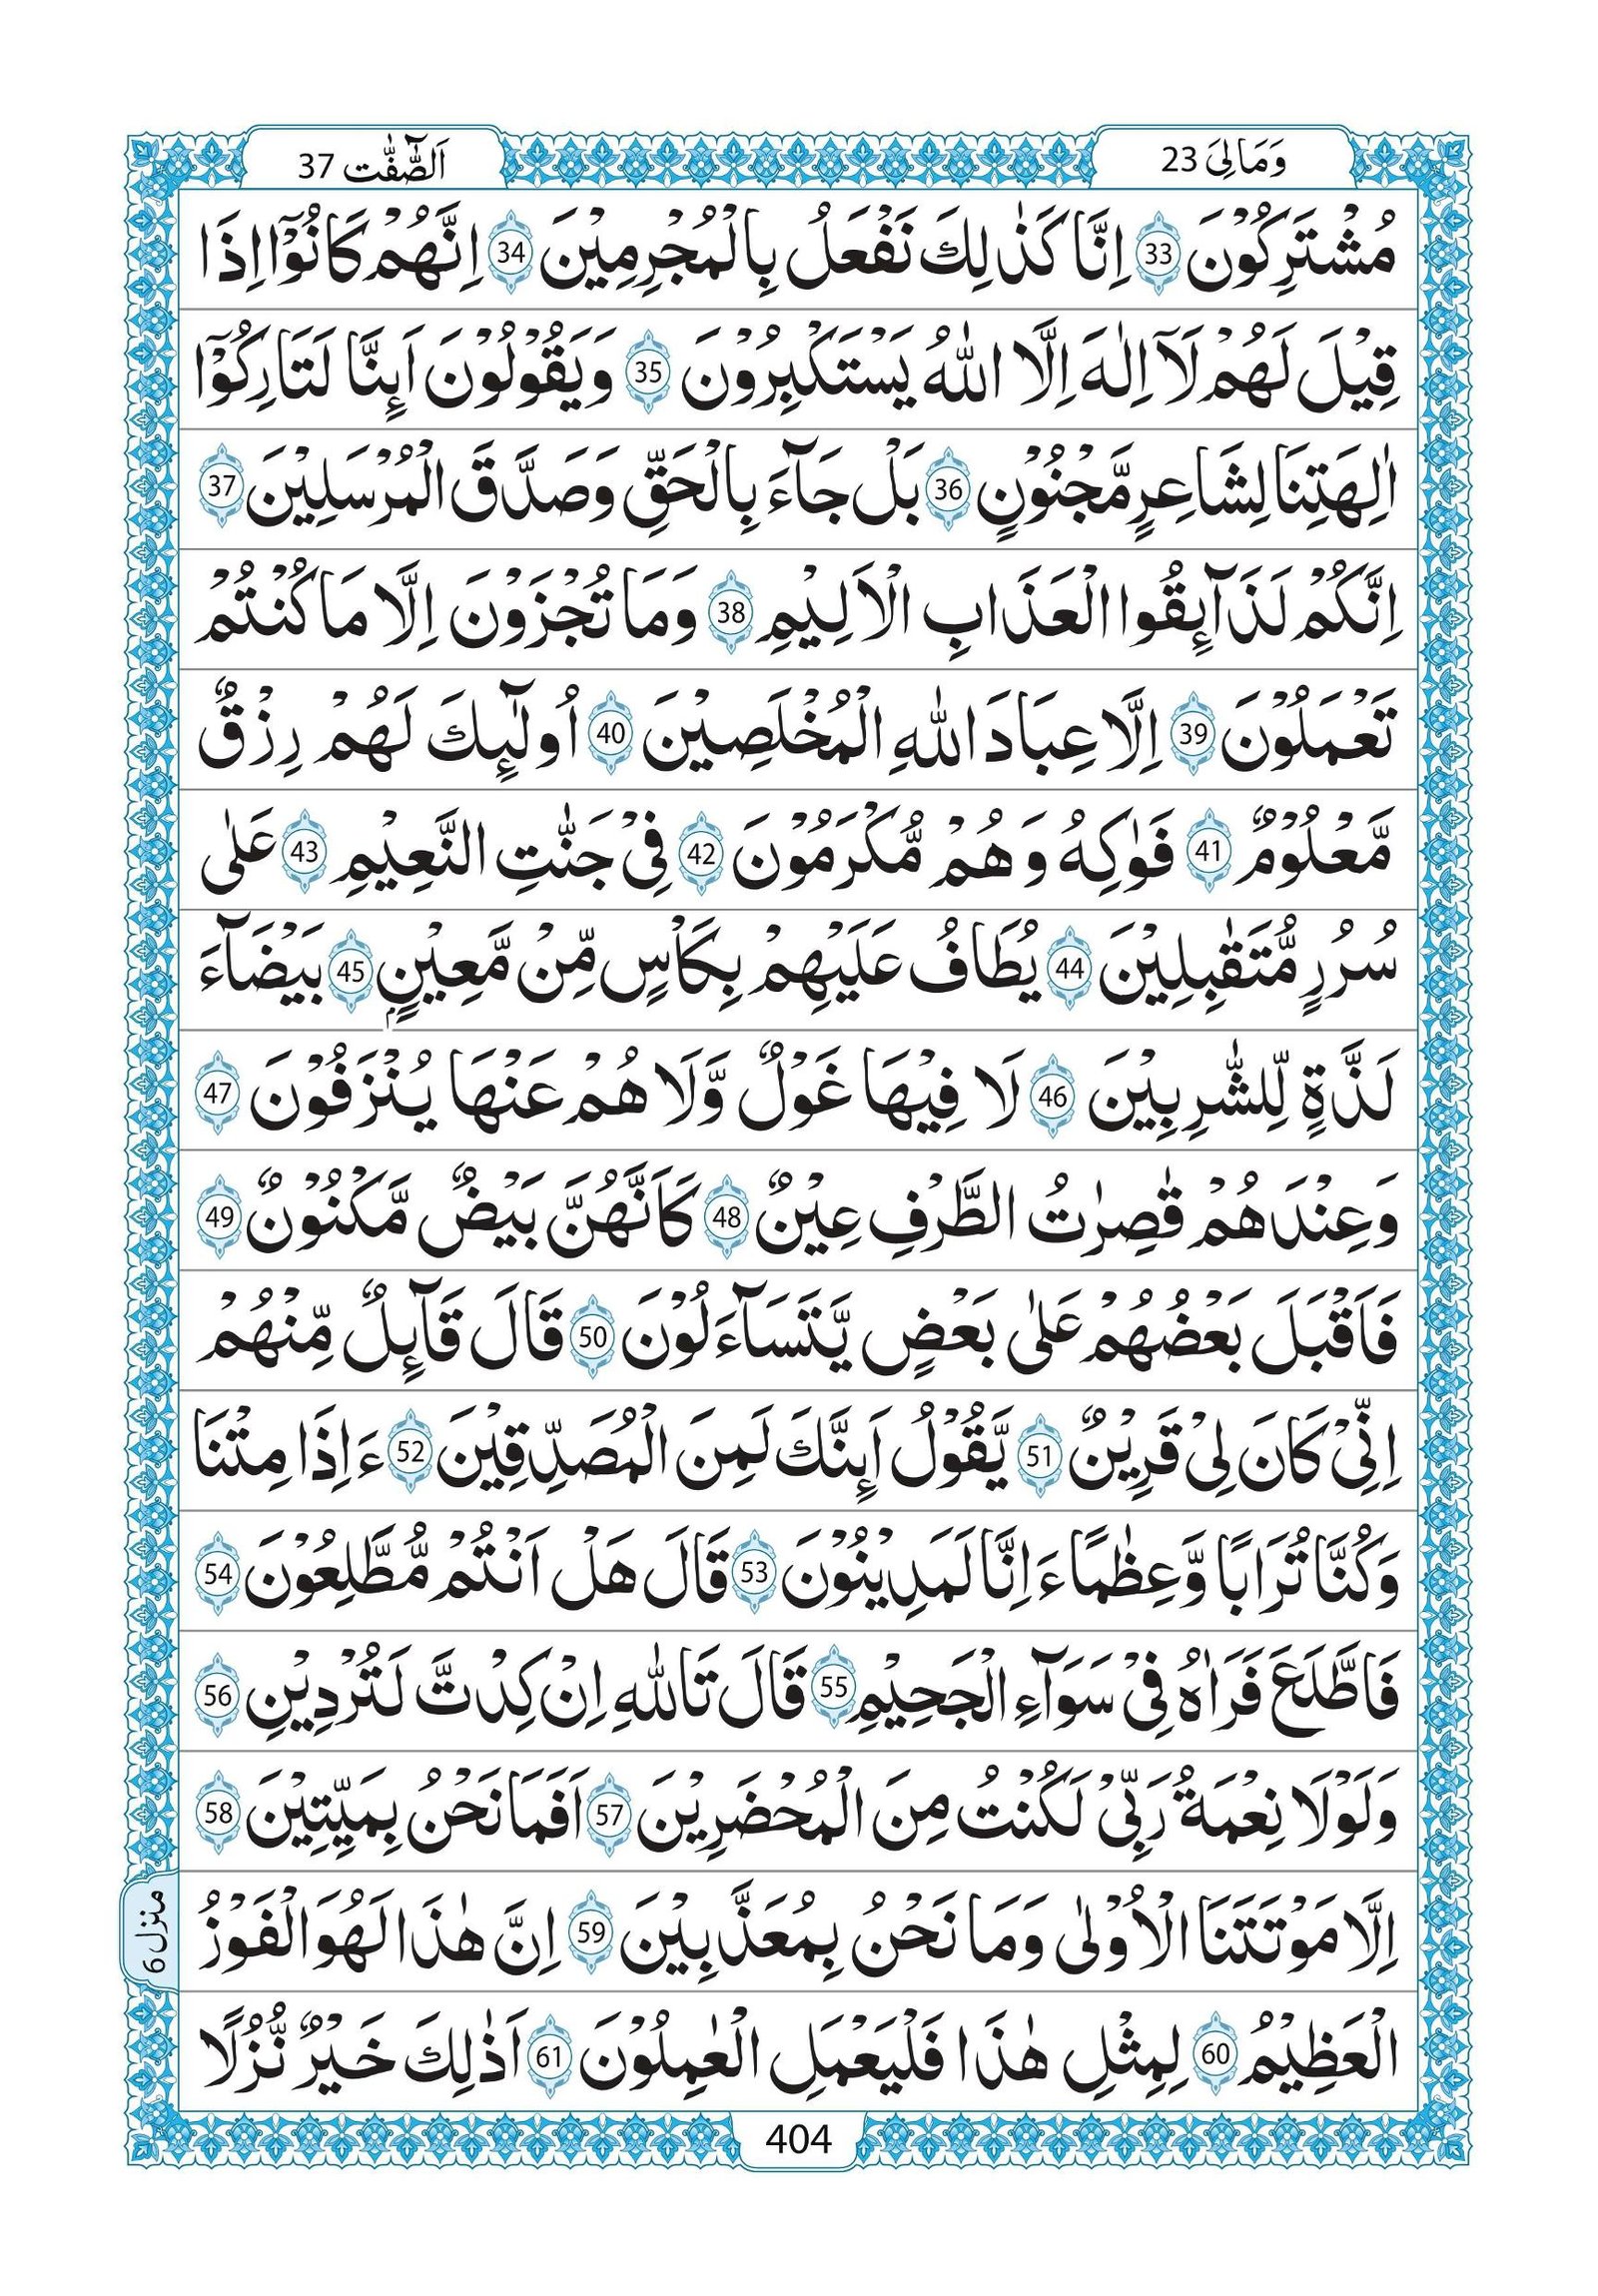 وَمَالِیَ 23
اَلصّٰٓفّٰت 37
مُشْتَرِكُوْنَ 33 اِنَّا كَذٰلِكَ نَفْعَلُ بِالْمُجْرِمِيْنَ 34 اِنَّهُمْ كَانُوْۤا اِذَا
قِيْلَ لَهُمْ لَاۤ اِلٰهَ اِلَّا اللّٰهُ يَسْتَكْبِرُوْنَ 35 وَيَقُوْلُوْنَ اَىِٕنَّا لَتَارِكُوْۤا
اٰلِهَتِنَا لِشَاعِرٍ مَّجْنُوْنٍ 36 بَلْ جَآءَ بِالْحَقِّ وَصَدَّقَ الْمُرْسَلِيْنَ 37
اِنَّكُمْ لَذَآىِٕقُوا الْعَذَابِ الْاَلِيْمِ 38 وَمَا تُجْزَوْنَ اِلَّا مَا كُنْتُمْ
تَعْمَلُوْنَ 39 اِلَّا عِبَادَ اللّٰهِ الْمُخْلَصِيْنَ 40 اُولٰٓىِٕكَ لَهُمْ رِزْقٌ
مَّعْلُوْمٌ 41 فَوَاكِهُ وَهُمْ مُّكْرَمُوْنَ 42 فِیْ جَنّٰتِ النَّعِيْمِ 43 عَلٰى
سُرُرٍ مُّتَقٰبِلِيْنَ 44 يُطَافُ عَلَيْهِمْ بِكَاْسٍ مِّنْ مَّعِيْنٍۭ 45 بَيْضَآءَ
لَذَّةٍ لِّلشّٰرِبِيْنَ 46 لَا فِيْهَا غَوْلٌ وَّلَا هُمْ عَنْهَا يُنْزَفُوْنَ 47
وَعِنْدَهُمْ قٰصِرٰتُ الطَّرْفِ عِيْنٌ 48 كَاَنَّهُنَّ بَيْضٌ مَّكْنُوْنٌ 49
فَاَقْبَلَ بَعْضُهُمْ عَلٰى بَعْضٍ يَّتَسَآءَلُوْنَ 50 قَالَ قَآىِٕلٌ مِّنْهُمْ
اِنِّیْ كَانَ لِیْ قَرِيْنٌ 51 يَّقُوْلُ اَىِٕنَّكَ لَمِنَ الْمُصَدِّقِيْنَ 52 ءَاِذَا مِتْنَا
وَكُنَّا تُرَابًا وَّعِظٰمًا ءَاِنَّا لَمَدِيْنُوْنَ 53 قَالَ هَلْ اَنْتُمْ مُّطَّلِعُوْنَ 54
فَاطَّلَعَ فَرَاٰهُ فِیْ سَوَآءِ الْجَحِيْمِ 55 قَالَ تَاللّٰهِ اِنْ كِدْتَّ لَتُرْدِيْنِ 56
وَلَوْلَا نِعْمَةُ رَبِّیْ لَكُنْتُ مِنَ الْمُحْضَرِيْنَ 57 اَفَمَا نَحْنُ بِمَيِّتِيْنَ 58
اِلَّا مَوْتَتَنَا الْاُوْلٰى وَمَا نَحْنُ بِمُعَذَّبِيْنَ 59 اِنَّ هٰذَا لَهُوَ الْفَوْزُ
الْعَظِيْمُ 60 لِمِثْلِ هٰذَا فَلْيَعْمَلِ الْعٰمِلُوْنَ 61 اَذٰلِكَ خَيْرٌ نُّزُلًا
منزل 6
404